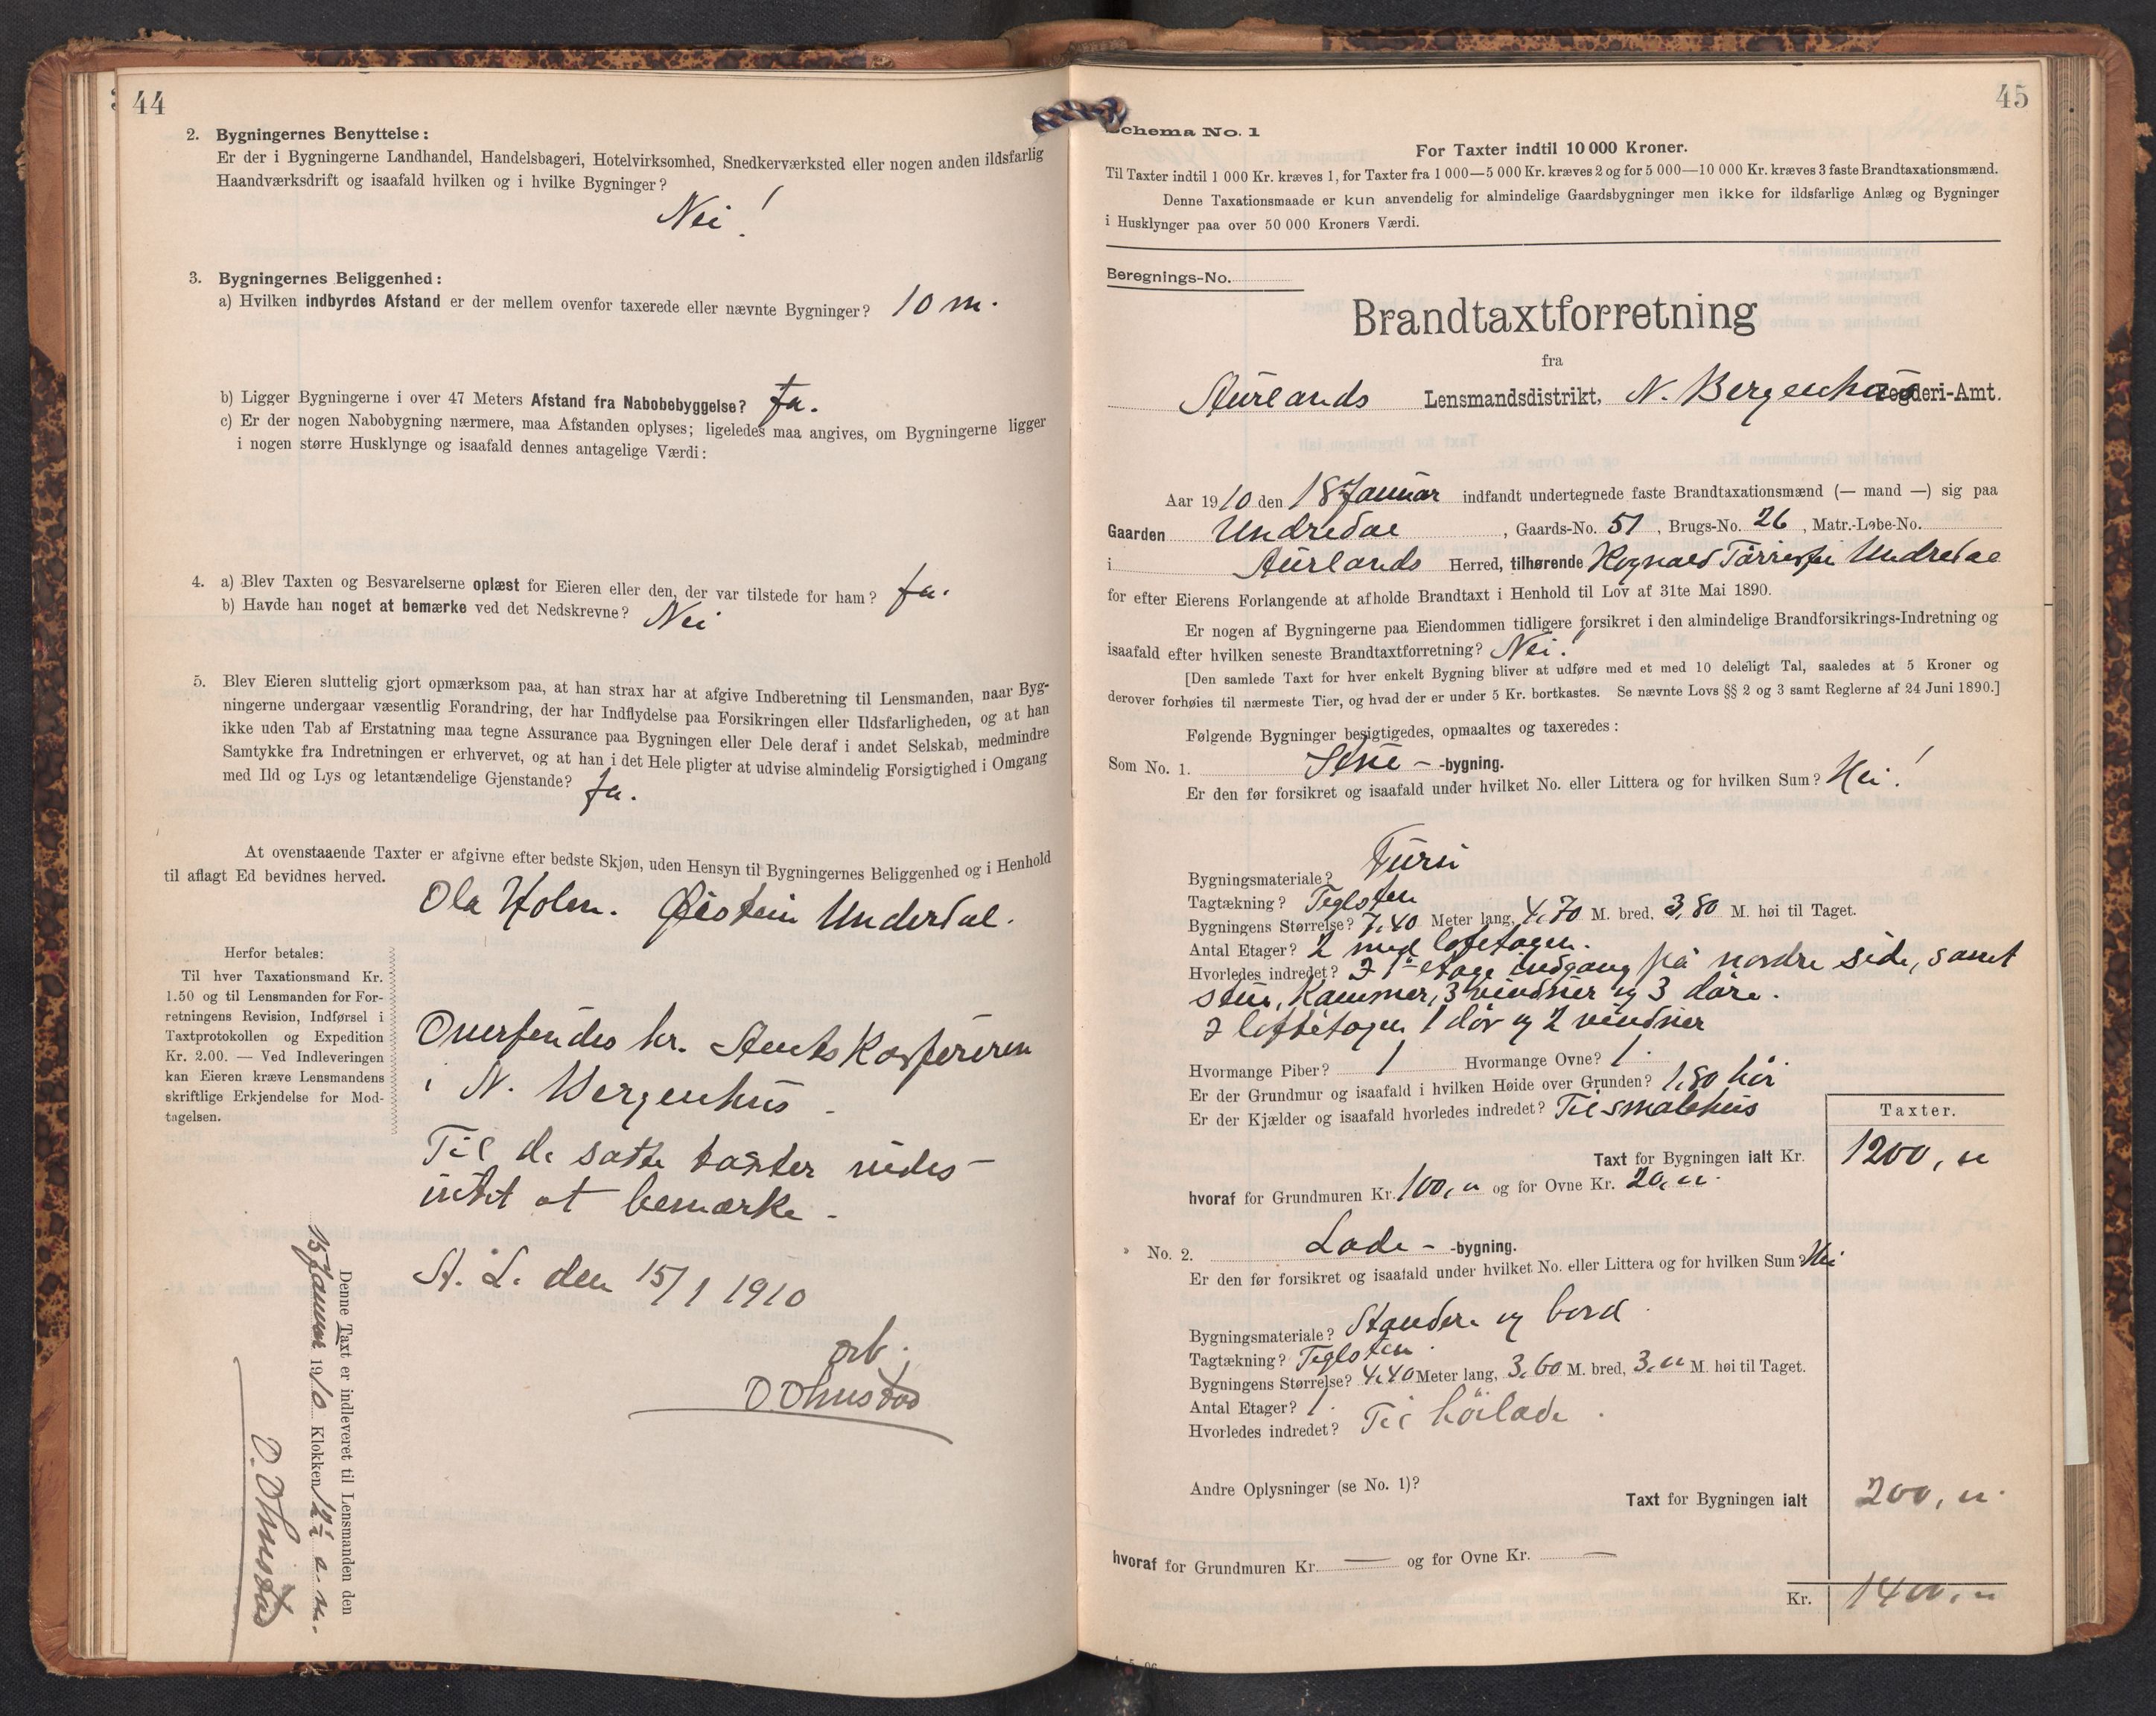 44
2. Bygningernes Benyttelse:
Er der i Bygningerne Landhandel, Handelsbageri, Hotelvirksomhed, Snedkerværksted eller nogen anden ildsfarlig
Haandværksdrift og isaafald hvilken og i hvilke Bygninger?
Nei!
3. Bygningernes Beliggenhed:
a) Hvilken indbyrdes Afstand er der mellem ovenfor taxerede eller nævnte Bygninger? 10 m.
b) Ligger Bygningerne i over 47 Meters Afstand fra Nabobebyggelse? Ja.
c) Er der nogen Nabobygning nærmere, maa Afstanden oplyses; ligeledes maa angives, om Bygningerne ligger
i nogen større Husklynge og isaafald dennes antagelige Værdi:
4. a) Blev Taxten og Besvarelserne oplæst for Eieren eller den, der var tilstede for ham? Ja.
b) Havde han noget at bemærke ved det Nedskrevne? Nei
5. Blev Eieren sluttelig gjort opmærksom paa, at han strax har at afgive Indberetning til Lensmanden, naar Byg-
ningerne undergaar væsentlig Forandring, der har Indflydelse paa Forsikringen eller Ildsfarligheden, og at han
ikke uden Tab af Erstatning maa tegne Assurance paa Bygningen eller Dele deraf i andet Selskab, medmindre
Samtykke fra Indretningen er erhvervet, og at han i det Hele pligter at udvise almindelig Forsigtighed i Omgang
med Ild og Lys og letantændelige Gjenstande? Ja.
At ovenstaaende Taxter er afgivne efter bedste Skjøn, uden Hensyn til Bygningernes Beliggenhed og i Henhold
til aflagt Ed bevidnes herved.
Ola Holm. Øistein Underdal.
Herfor betales:
Til hver Taxationsmand Kr.
1.50 og til Lensmanden for For-
retningens Revision, Indførsel i
Taxtprotokollen og Expedition
Kr. 2.00. — Ved Indleveringen
kan Eieren kræve Lensmandens
skriftlige Erkjendelse for Mod-
tagelsen.
Oversendes hr. Amtskassereren
i N. Bergenhus -
Til de satte taxter vides
intet at bemærke -
A. L. den 15/1 1910
ærb.
O. Ohnstad
Denne Taxt er indleveret til Lensmanden den
15 Januar 1910 Klokken 12 a. m.
O. Ohnstad
45
Schema No. 1
For Taxter indtil 10 000 Kroner.
Til Taxter indtil 1 000 Kr. kræves 1, for Taxter fra 1 000—5 000 Kr. kræves 2 og for 5 000—10 000 Kr. kræves 3 faste Brandtaxationsmænd.
Denne Taxationsmaade er kun anvendelig for almindelige Gaardsbygninger men ikke for ildsfarlige Anlæg og Bygninger
i Husklynger paa over 50 000 Kroners Værdi.
Beregnings-No.
Brandtaxtforretning
fra
Aurlands Lensmandsdistrikt, N. Bergenhus Fogderi-Amt.
Aar 1910 den 18 Januar indfandt undertegnede faste Brandtaxationsmænd (— mand —) sig paa
Gaarden Undredal, Gaards-No. 51, Brugs-No. 26, Matr.-Løbe-No.
i Aurlands Herred, tilhørende Rognald Undredal
for efter Eierens Forlangende at afholde Brandtaxt i Henhold til Lov af 31te Mai 1890.
Er nogen af Bygningerne paa Eiendommen tidligere forsikret i den almindelige Brandforsikrings-Indretning og
isaafald efter hvilken seneste Brandtaxtforretning? Nei!
[Den samlede Taxt for hver enkelt Bygning bliver at udføre med et med 10 deleligt Tal, saaledes at 5 Kroner og
derover forhøies til nærmeste Tier, og hvad der er under 5 Kr. bortkastes. Se nævnte Lovs §§ 2 og 3 samt Reglerne af 24 Juni 1890.]
Følgende Bygninger besigtigedes, opmaaltes og taxeredes:
Som No. 1. Stue - -bygning.
Er den før forsikret og isaafald under hvilket No. eller Littera og for hvilken Sum? Nei!
Bygningsmateriale? Furu
Tagtækning? Teglsten
Bygningens Størrelse? 7,40 Meter lang, 4,70 M. bred, 3,80 M. høi til Taget.
Antal Etager? 2 med loftetagen.
Hvorledes indredet? I 1ste etage indgang på nordre side, samt
stue, Kammer, 3 vinduer og 3 døre.
I loftetagen 1 dør og 2 vinduer
Hvormange Piber? 1 Hvormange Ovne? 1.
Er der Grundmur og isaafald i hvilken Høide over Grunden? 1,80 høi
Er der Kjælder og isaafald hvorledes indredet? Til smalehus
Taxter.
Taxt for Bygningen ialt Kr. 1200, "
hvoraf for Grundmuren Kr. 100, " og for Ovne Kr. 20, "
" No. 2. Lade - -bygning.
Er den før forsikret og isaafald under hvilket No. eller Littera og for hvilken Sum? Nei
Bygningsmateriale? Standere og bord
Tagtækning? Teglsten
Bygningens Størrelse? 4,40 Meter lang, 3,60 M. bred, 3, " M. høi til Taget.
Antal Etager? 1.
Hvorledes indredet? Til høilade.
Andre Oplysninger (se No. 1)?
Taxt for Bygningen ialt 200, "
hvoraf for Grundmuren Kr. — og for Ovne Kr. —
Kr. 1400, "